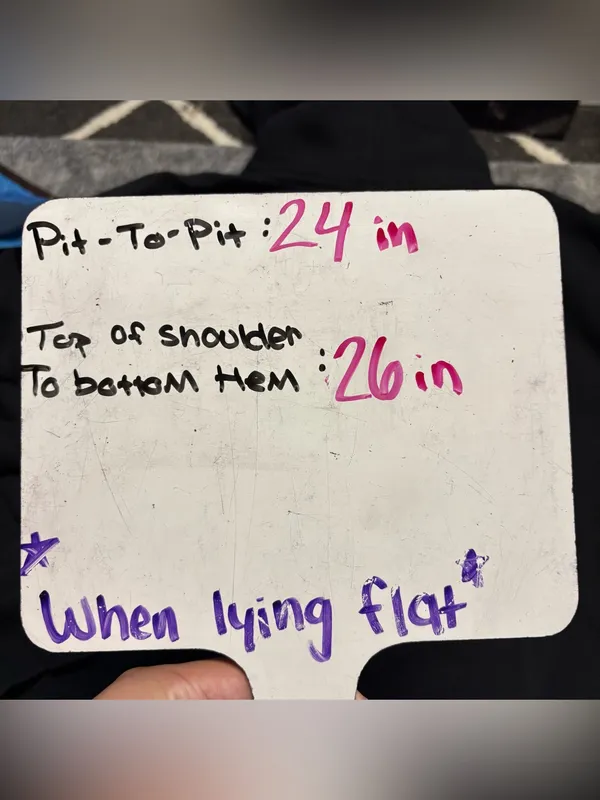 Pit-To-Pit: 24 in
Top of shoulder
To bottom Hem : 26 in
When lying flat